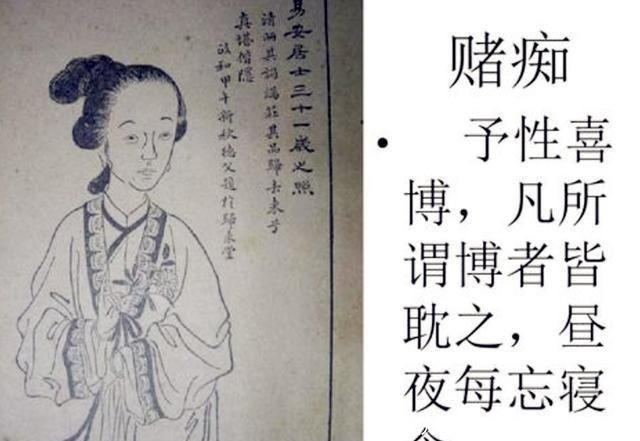 易安居士三十一歲之照
清麗其詞端莊其品歸去來兮
真堪偕隱
政和甲午新秋德父題於歸來堂
赌痴
• 予性喜
博，凡所
谓博者皆
耽之，昼
夜每忘寝